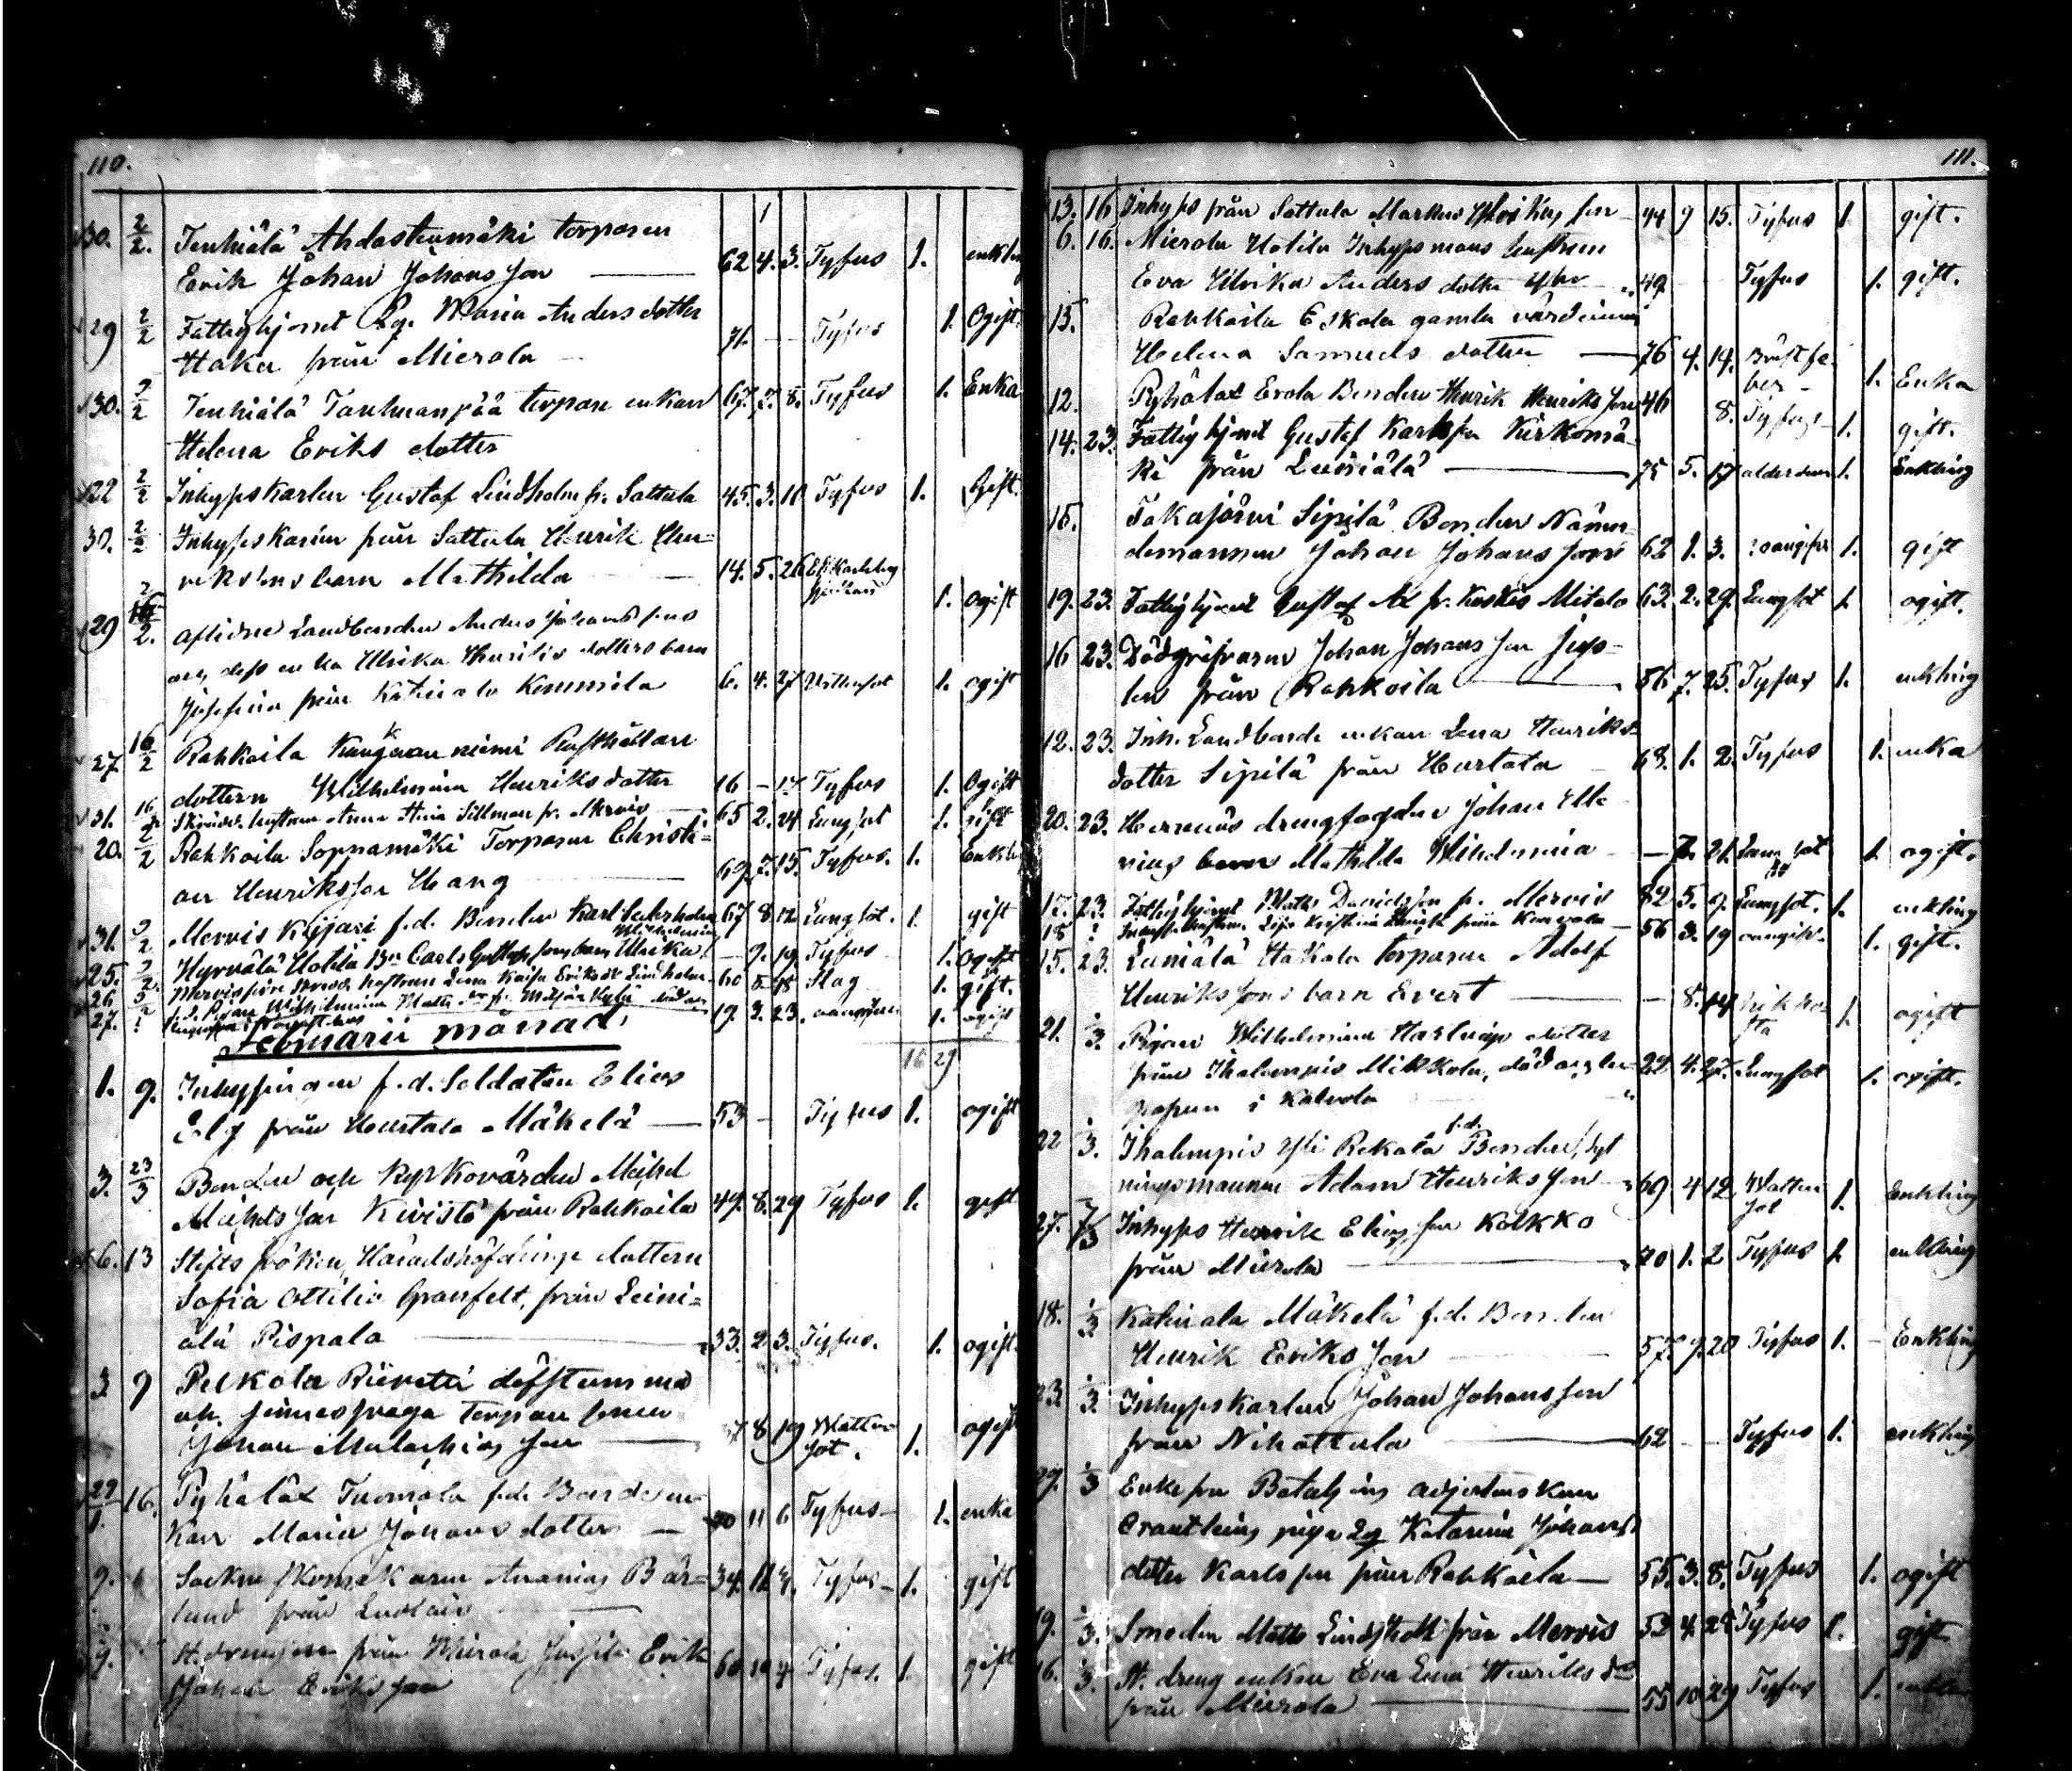 110.
30. 2/2. Tenhiälä Ahdastenmäki torparen
Erik Johan Johansson 62 4. 3. Tyfus 1. enkling
29 2/2 Fattighjonet Lg. Maria Andersdotter
Haka från Mierola 71. - - Tyfus 1. Ogift
30. 9/2 Tenhiälä Tanhuanpää torpare enkan 67. 7. 8. Tyfus 1. Enka
Helena Eriks dotter
22 2/2 Inhyses karlen Gustaf Lindholm fr. Sattula 45. 3. 10 Tyfus 1. Gift
30. 2/2 Inhyses karlen från Sattula Henrik Hen-
rikssons barn Mathilda 14. 5. 26 1. ogift
29 2. aflidne Landbonden Anders Johanssons
och dess enka Ulrika Henriks dotters barn
Josefina från Katinala Kemmilä 6. 4. 27 Vattusot 1. ogift
27. 16/2 Rahkoila Kangasniemi Rusthållare
dottern Wilhelmina Henriksdotter 16 - 17 Tyfus 1. Ogift
31. 16 hustrun Anna Stina Sillman fr. Mervis 65 2. 24 Lungsot 1. gift
20. 2/2 Rahkoila Soppamäki Torparen Christi-
an Henriksson Hang 69 7. 15. Tyfus. 1. Enkl
31. 9/2 Mervis Kijjari f.d. Bonden Karl 67 8 12 Lungsot. 1. gift
25. 9/2. Hyrvälä Uotila Bn Carls Gustafssons barn Ulrika Wilhelmina - 9. 19 Tyfus 1. ogift
26 5 Mervis hustrun Lena Kaisa Eriksdr Lindholm 60 5 18 Slag 1. gift.
27. ? f.d. Pigan Wilhelmina Matts dr fr. 19. 3. 23. 1. ogift
Februarii månad, 16 29
1. 9. Inhysingen f.d. Soldaten Elias
Elg från Hurtala Mäkelä 53 - Tyfus 1. ogift
3. 23/3 Bonden och Kyrkovärden Michel
Michelsson Kivistö från Rahkoila 49. 8. 29 Tyfus 1. gift
6. 13 Stifts fröken, Häradshöfdinge dottern
Sofia Ottilia Granfelt, från Leini-
älä Pispala 33. 2 3. Tyfus. 1. ogift.
3 9 Pelkola Rievetti döfstumma
och sinnessvaga torpare sonen
Johan Malachias son 37 8 19 Vattu
sot. 1. ogift
29/1. 16. Pyhälax Tuomola f.d. Bonde en-
kan Maria Johans dotter 70 11 6 Tyfus 1. enka
9. Socken skomakaren Ananias Bär-
lund från 34. 11 4. Tyfus 1. gift
9. St. drengen från Mierola Jussila Erik
Johan Eriksson 60 10 4 Tyfus. 1. gift
111.
13. 16 Inhyses från Sattula Markus son 44 9 15. Tyfus 1. gift.
6. 16. Mierola Uotila Inhyses mans hustrun
Eva Ulrika Anders dotter 49 Tyfus 1. gift.
15. Rahkoila Eskola gamla värdinnan
Helena Samuels dotter 76 4. 14. Bröstfe-
ber - 1. Enka
12. Pyhälax Erola Bonden Henrik Henriksson 46 8. Tyfus 1. gift.
14. 23. Fattighjonet Gustaf Karlsson Kirkomä-
ki från Luiniälä 75 5. 17 alderdom 1. Enkling
15. Takajärvi Sipilä Bonden Näm-
demannen Johan Johansson 62 1. 3. 1. gift
19. 23. Fattighjonet Gustaf Ax fr. Keskis Mitala 63. 2. 29. Lungsot 1 ogift.
16 23. Dödgräfvaren Johan Johansson
från Rahkoila 56 7. 25. Tyfus 1. enkling
12. 23. Inh. Landbonde enkan Lena Henriks-
dotter Sipilä från Hurtala 68. 1. 2. Tyfus 1. enka
20. 23. Herreniäs drengfogden Johan Elle-
nius barn Mathilda Wilhelmina - 7. 21. Lungsot 1. ogift.
17. 23. Fattighjonet Matts Davidsson fr. Mervis 82 5. 7. Lungsot. 1. enkling
18 ? hustrun Kristina från 56 3. 19 1. gift.
15. 23. Luiniälä Hakala torparen Adolf
Henrikssons barn Evert - 8. 14 kikho-
sta 1. ogift
21. 1/3. Pigan Wilhelmina dotter
från Ihalempis Mikkola, död och be-
grafven i Kalvola 22. 4. 27. Lungsot 1. ogift.
22 1/3. Ihalempis Yli Rekola f.d. Bonden, Syt
ningsmannen Adam Henriksson 69 4 12. Vattu
sot 1. Enkling
27. 7/3 Inhyses Henrik Eliasson Kokko
från Mierola 70 1. 2 Tyfus 1. enkling
18. 1/3 Katinala Mäkelä f.d. Bonden
Henrik Eriksson 57. 9. 20 Tyfus 1. - Enkling
23. 1/3. Inhyses karlen Johan Johansson
från Nihattula 62 - - Tyfus 1. enkling
29. 1/3 Enkefru Bataljons adjutanskan
piga Lg Katarina Johans
dotter Karlsson från Rahkoila 55. 3. 8. Tyfus 1. ogift
19. 1/3. Smeden Matts Lindstedt från Mervis 53 4. 28 Tyfus 1. gift
16. 1/3. St. dreng enkan Eva Lena Henriks dr
från Mierola 55 10 29 Tyfus 1. enka